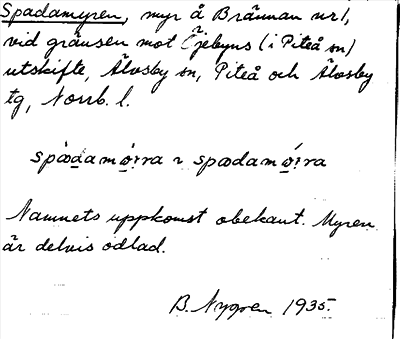 Spadamyren, myr å Brännan nr 1,
vid gränsen mot Öjebyns (i Piteå sn)
utskifte, Älvsby sn, Piteå och Älvsby
tg, Norrb. l.
Namnets uppkomst obekant. Myren
är delvis odlad.
B. Nygren 1935.